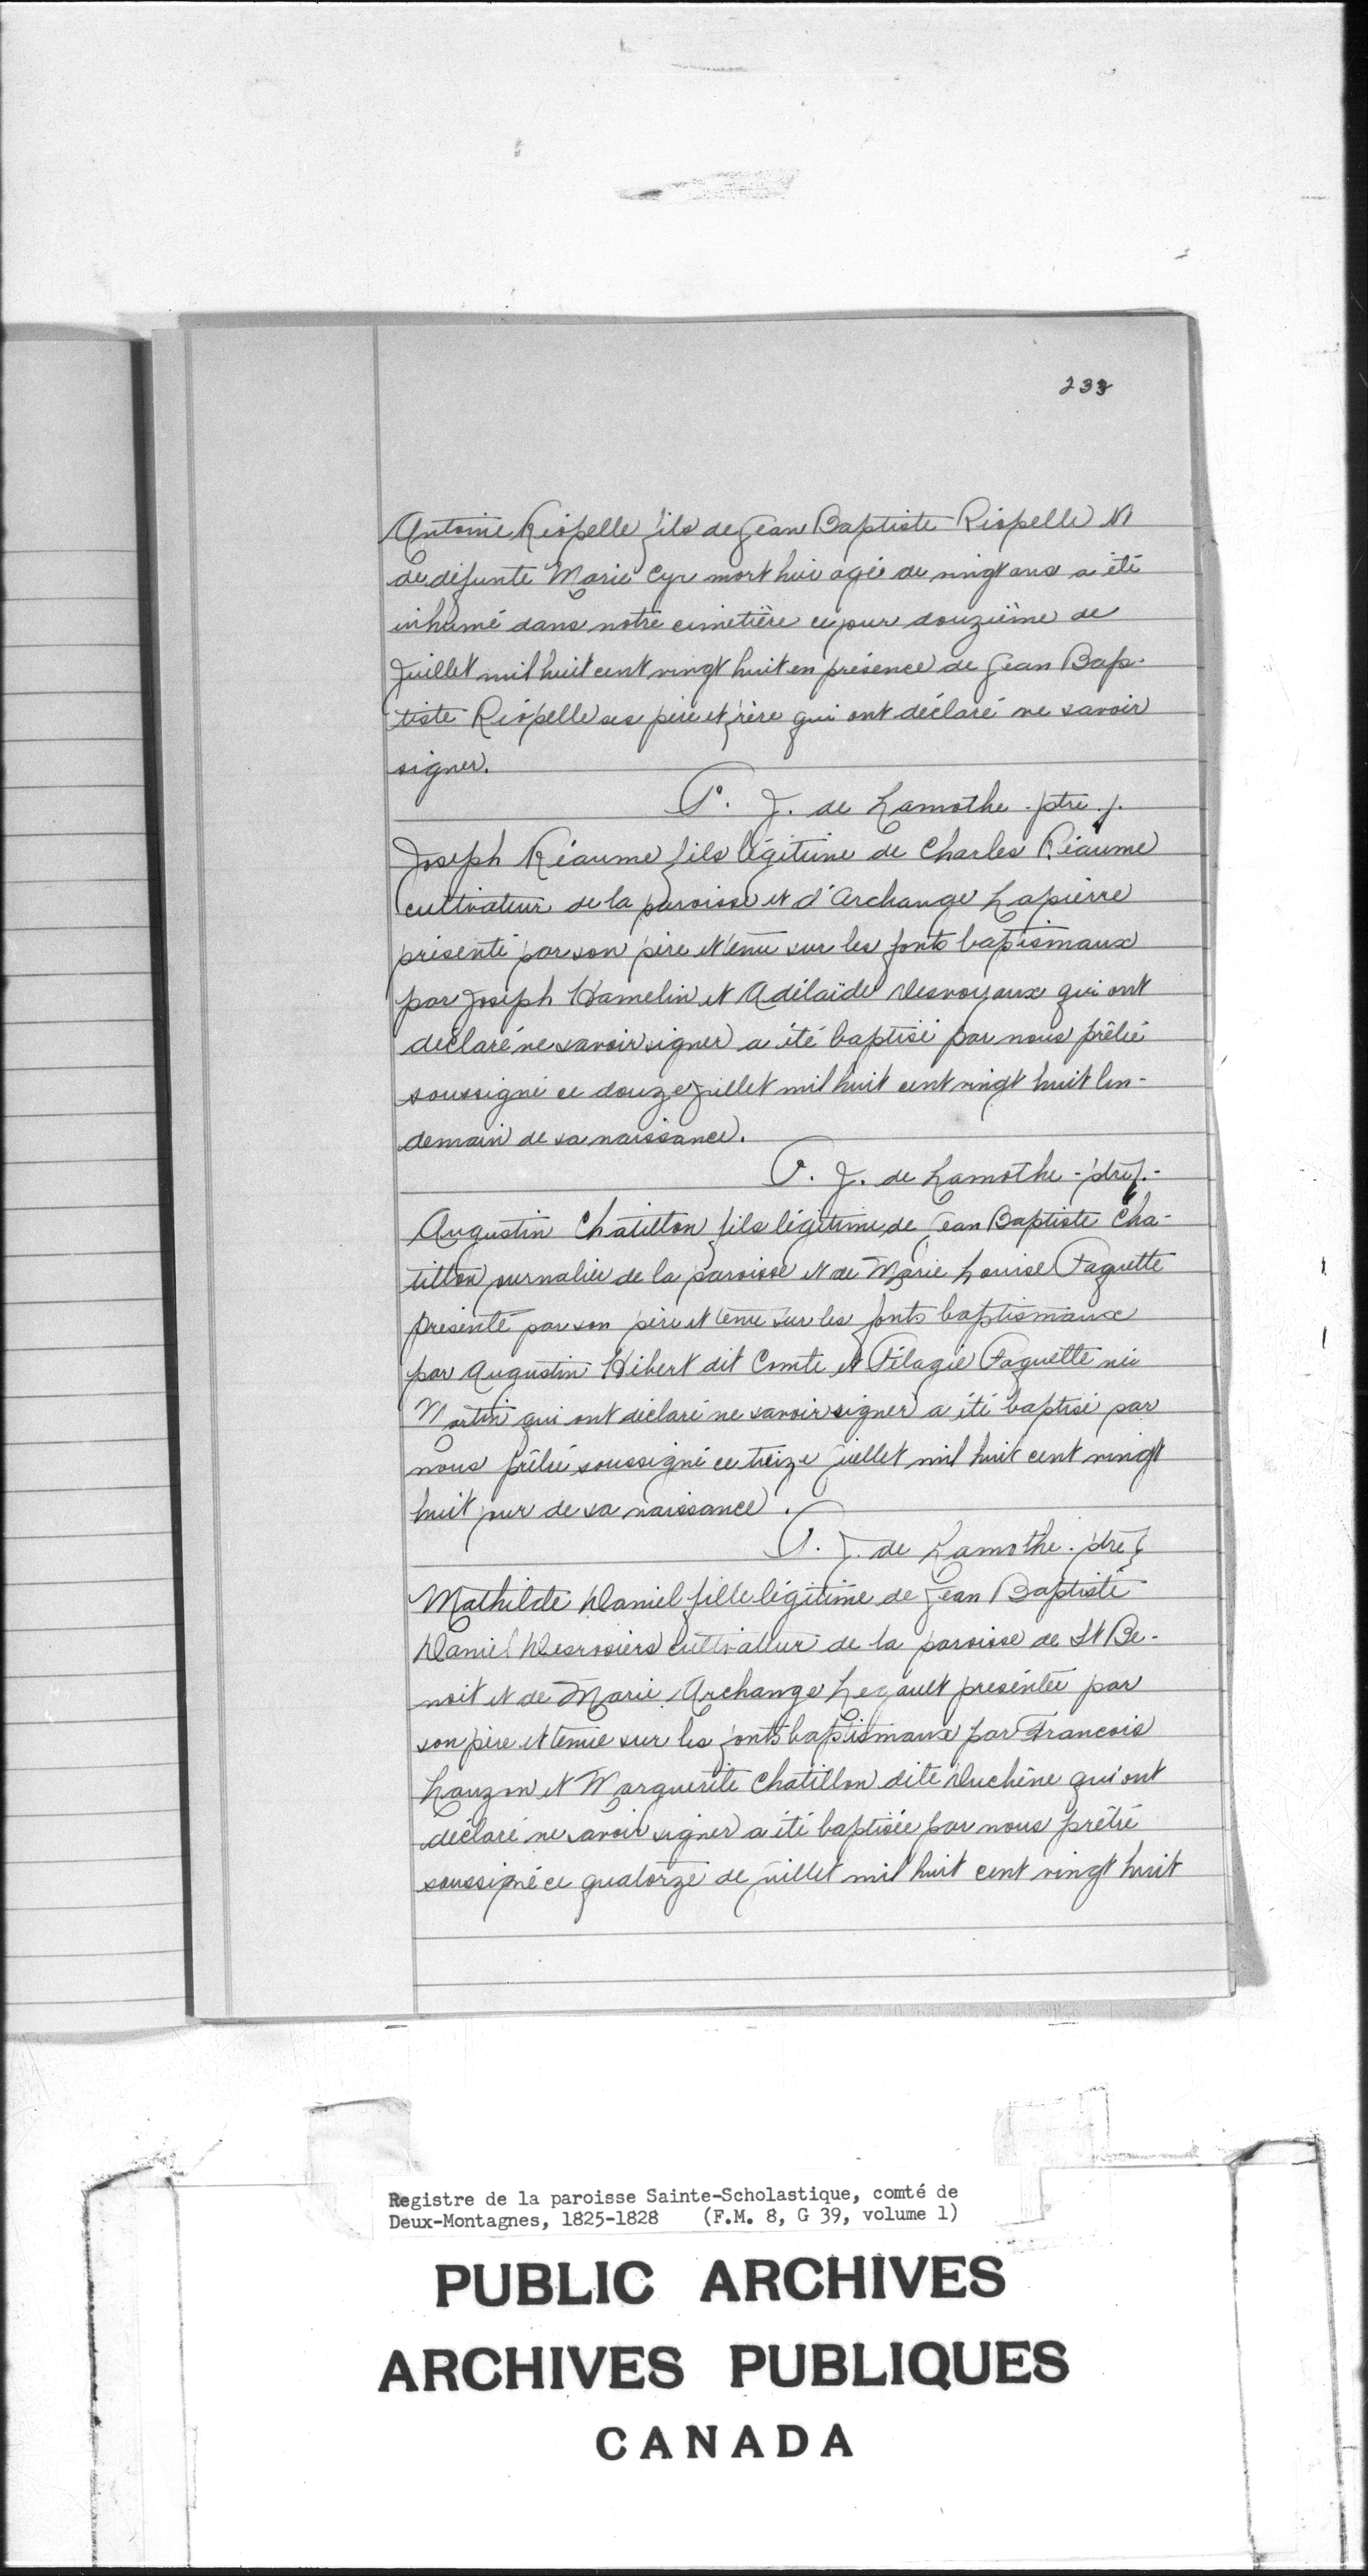 233
Antoine Riopelle fils de Jean Baptiste Riopelle et
de défunte Marie Cyr mort hier agée de vingt ans a été
inhumé dans notre cimetière ce jour douzième de
Juillet mil huit cent vingt huit en présence de Jean Bap-
tiste Riopelle ses père et frère qui ont déclaré ne savoir
signer.
P. J. de Lamothe. ptre.
Joseph Réaume fils légitime de Charles Réaume
cultivateur de la paroisse et d'Archange Lapierre
présenté par son père et tenu sur les fonts baptismaux
par Joseph Hamelin et Adélaïde Desvoyaux qui ont
déclaré ne savoir signer a été baptisé par nous prêtre
soussigné ce douze juillet mil huit cent vingt huit len-
demain de sa naissance.
P. J. de Lamothe - ptre.-
Augustin Chatillon fils légitime de Jean Baptiste Cha-
tillon journalier de la paroisse et de Marie Louise Paquette
présenté par son père et tenu sur les fonts baptismaux
par Augustin Hibert dit Comte et Pélagie Paquette née
Martin qui ont déclaré ne savoir signer a été baptisé par
nous prêtre soussigné ce treize juillet mil huit cent vingt
huit jour de sa naissance.
P. J. de Lamothe. ptre
Mathilde Daniel fille légitime de Jean Baptiste
Daniel Desrosiers cultivateur de la paroisse de St Be-
noit et de Marie Archange Legault présentée par
son père et tenue sur les fonts baptismaux par Francois
Lauzon et Marguerite Chatillon dite Duchêne qui ont
déclaré ne savoir signer a été baptisée par nous prêtre
soussigné ce quatorze de juillet mil huit cent vingt huit
Registre de la paroisse Sainte-Scholastique, comté de
Deux-Montagnes, 1825-1828 (F.M. 8, G 39, volume 1)
PUBLIC ARCHIVES
ARCHIVES PUBLIQUES
CANADA